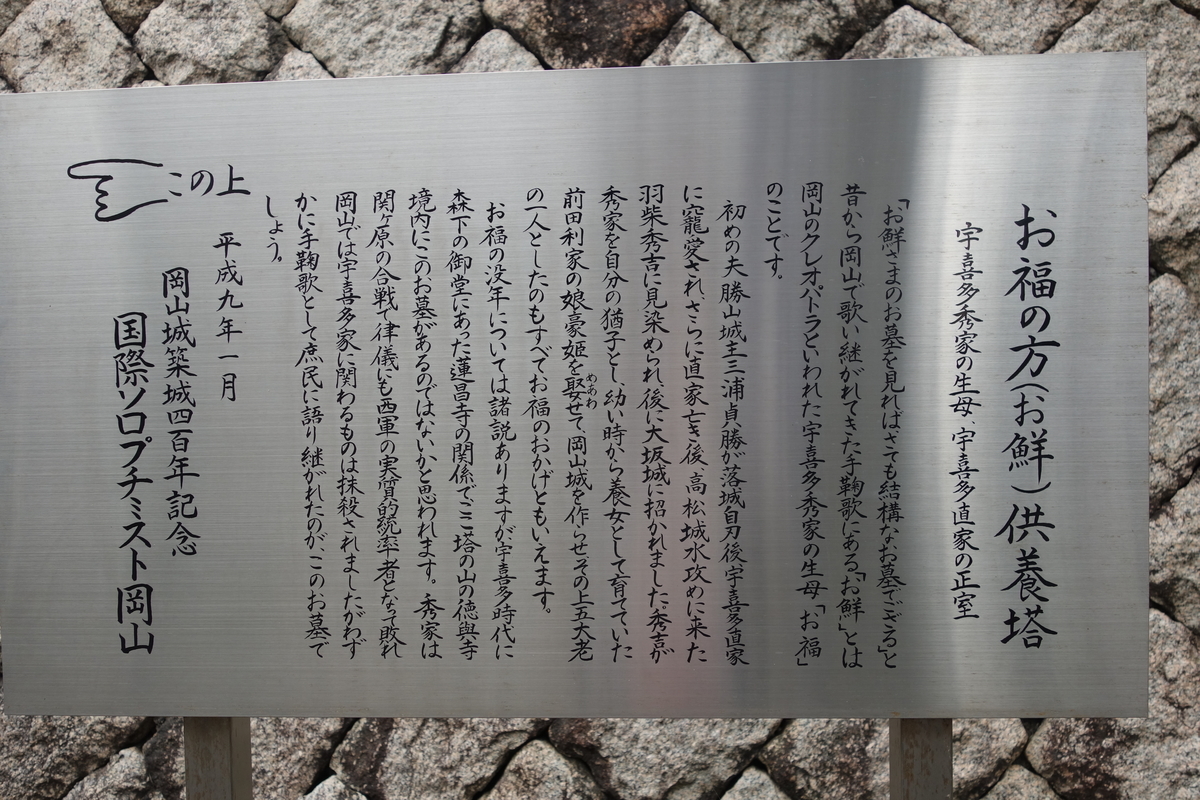 お福の方(お鮮)供養塔
宇喜多秀家の生母、宇喜多直家の正室
「お鮮さまのお墓を見ればさても結構なお墓でござる」と
昔から岡山で歌い継がれてきた手鞠歌にある「お鮮」とは
岡山のクレオパトラといわれた宇喜多秀家の生母「お福」
のことです。
初めの夫勝山城主三浦貞勝が落城自刃後宇喜多直家
に寵愛され、さらに直家亡き後、高松城水攻めに来た
羽柴秀吉に見染められ、後に大坂城に招かれました。秀吉が
秀家を自分の猶子とし、幼い時から養女として育てていた
前田利家の娘豪姫を娶せて、岡山城を作らせその上五大老
めあわ
の一人としたのもすべてお福のおかげともいえます。
お福の没年については諸説ありますが宇喜多時代に
森下の御堂にあった蓮昌寺の関係で二塔の山の徳與寺
境内にこのお墓があるのではないかと思われます。秀家は
関ヶ原の合戦で律儀にも西軍の実質的統率者となって敗れ
岡山では宇喜多家に関わるものは抹殺されましたがわず
かに手鞠歌として庶民に語り継がれたのが、このお墓で
しょう。
この上
平成九年一月
岡山城築城四百年記念
国際ソロプチミスト岡山